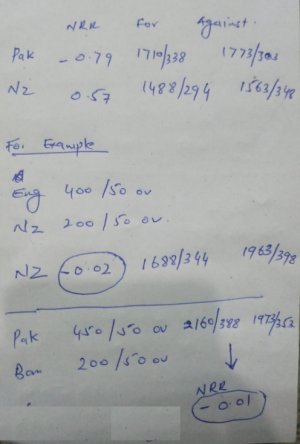 NRR For Against.
Pak - 0.79 1710/338 1773/303
NZ 0.57 1488/294 1563/348
For Example
Eng 400 /50 ov
NZ 200 / 50 ov.
NZ -0.02 1688/344 1963/398
Pak 450 / 50 ov 2160/388 1973/353
Ban 200 / 50 ov
NRR
- 0.01